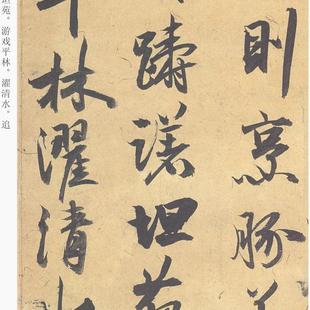 則烹豚
躊躇坦苑
平林濯清水
苑。游戏平林。濯清水。追